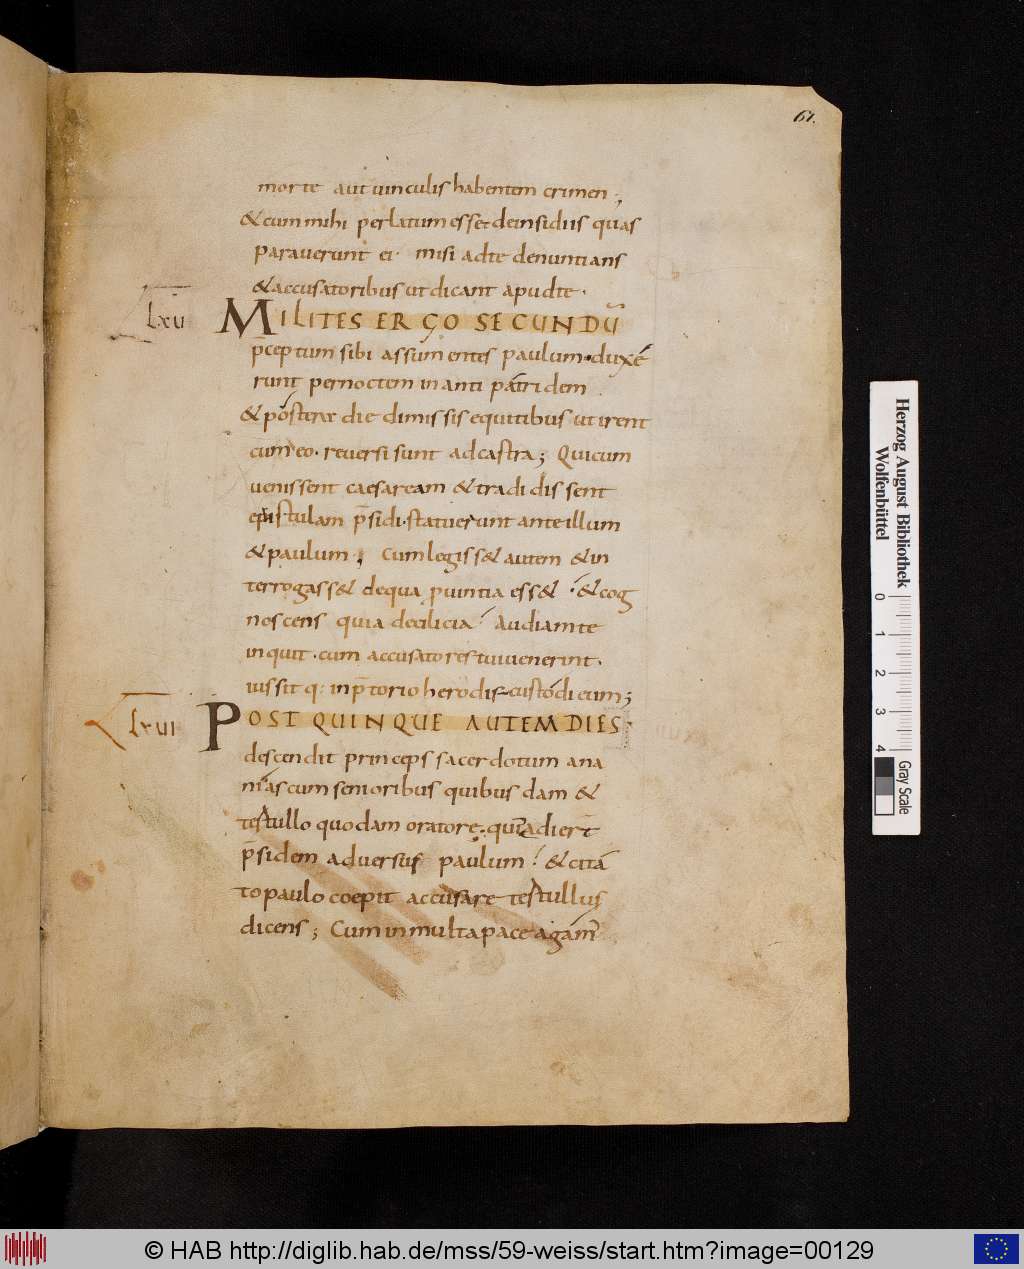 61.
morte aut uinculis habentem crimen ;
& cum mihi perlatum esset de insidiis quas
paraverunt ei · misi ad te denuntians
& accusatoribus ut dicant apud te ·
Lxu MILITES ERGO SECUNDŪ
p̄ceptum sibi assumentes paulum · duxe
runt per noctem in antipatridem
& posterae die dimissis equitibus ut irent
cum eo · reversi sunt ad castra ; Qui cum
uenissent caesaream & tradidissent
epistulam p̄sidi · statuerunt ante illum
& paulum ; Cum legiss& autem & in
terrogass& de qua puintia ess& · & cog
noscens quia de cilicia Audiam te
inquit · cum accusatores tui uenerint ·
iussitq: in p̄torio herodis custodi eum ;
Lxui POST QUINQUE AUTEM DIES ·
descendit princeps sacerdotum ana
nias cum senioribus quibusdam &
tertullo quodam oratore · qui adiert̄
p̄sidem adversus paulum · & cita
to paulo coepit accusare tertullus
dicens ; Cum in multa pace agam
Herzog August Bibliothek
Wolfenbüttel
0 1 2 3 4
Gray Scale
© HAB http://diglib.hab.de/mss/59-weiss/start.htm?image=00129